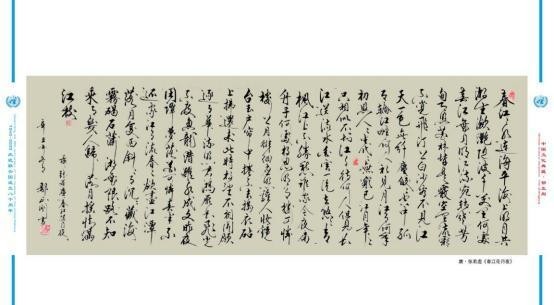 春江潮水连海平海上明月共
潮生滟滟随波千万里何处
春江无月明江流宛转绕芳
甸月照花林皆似霰空里流霜
不觉飞汀上白沙看不见江
天一色无纤尘皎皎空中孤
月轮江畔何人初见月江月何年
初照人人生代代无穷已江月年年
只相似不知江月待何人但见长
江送流水白云一片去悠悠青
枫浦上不胜愁谁家今夜扁
舟子何处相思明月楼可怜
楼上月徘徊应照离人妆镜
台玉户帘中卷不去捣衣砧
上拂还来此时相望不相闻愿
逐月华流照君鸿雁长飞光
不度鱼龙潜跃水成文昨夜
闲潭梦落花可怜春半
不还家江水流春去欲尽江潭
落月复西斜斜月沉沉藏海
雾碣石潇湘无限路不知
乘月几人归落月摇情满
江树
唐·张若虚《春江花月夜》